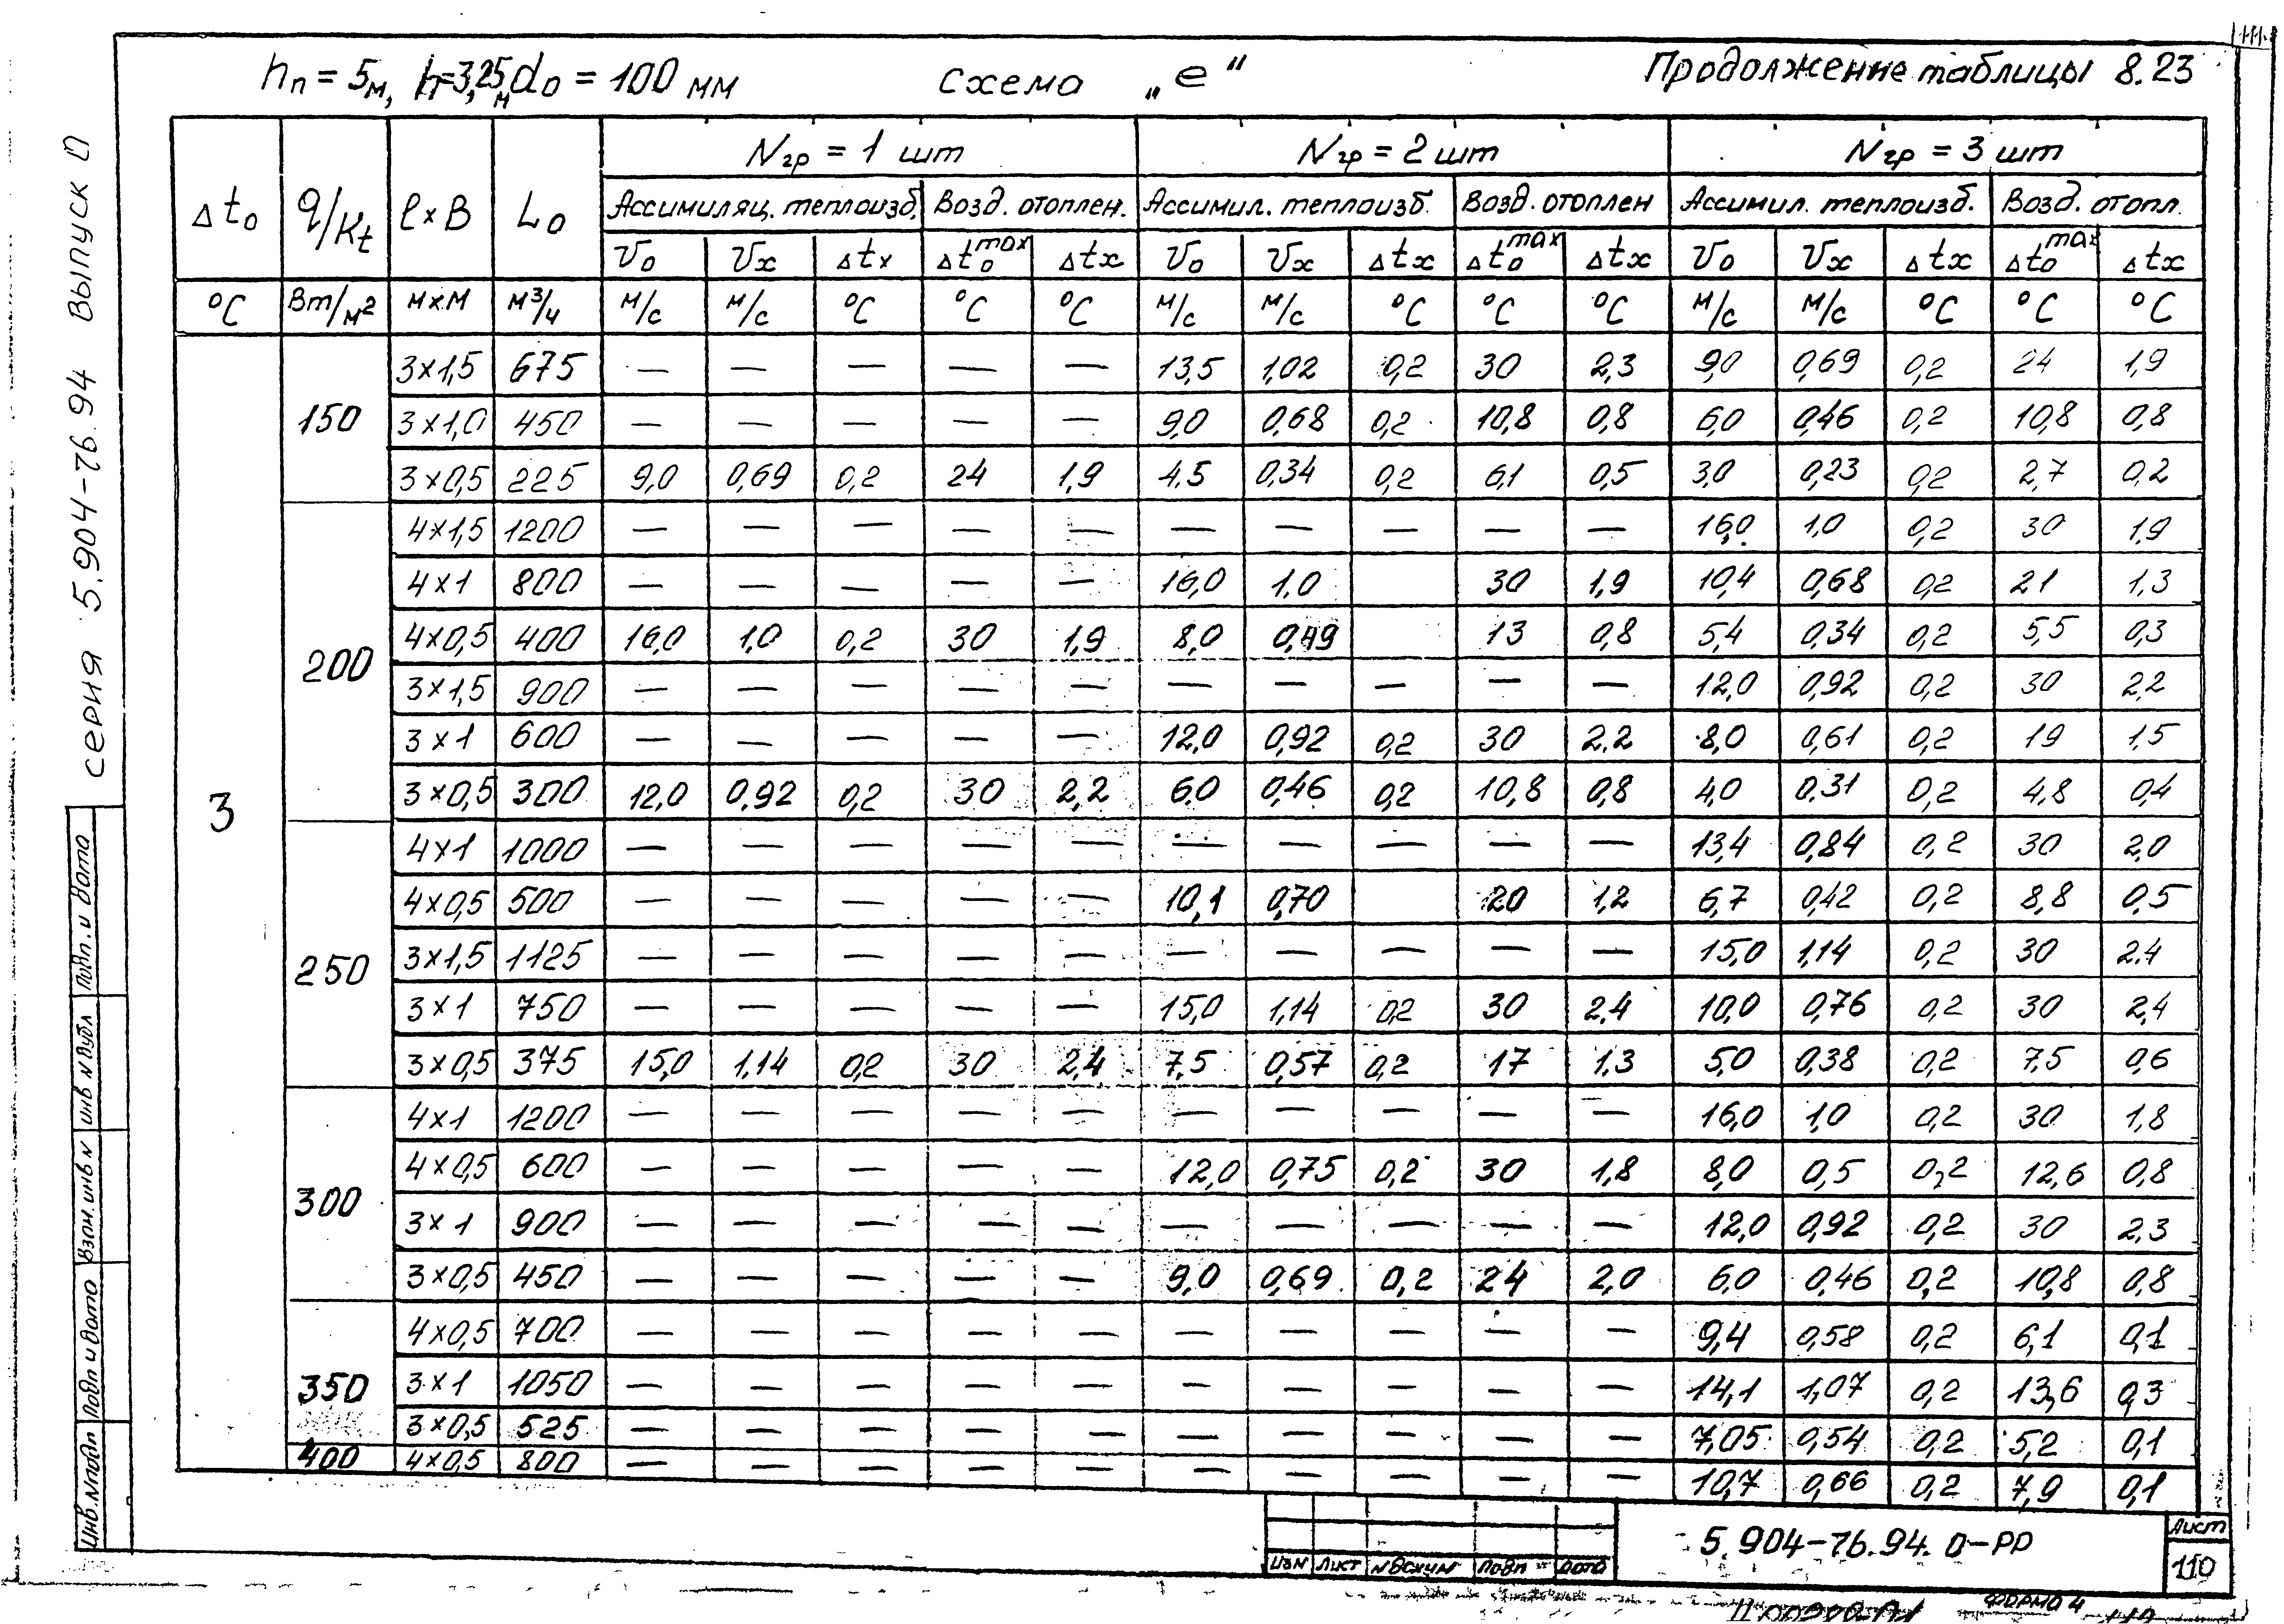 hп = 5м, h=3,25м d₀ = 100 мм схема „е“ Продолжение таблицы 8.23
Nгр = 1 шт Nгр = 2 шт Nгр = 3 шт
Δt₀ q/Kt ℓ×В L₀ Ассимиляц. теплоизб. Возд. отоплен. Ассимил. теплоизб. Возд. отоплен Ассимил. теплоизб. Возд. отопл.
V₀ Vx Δtx Δt₀max Δtx V₀ Vx Δtx Δt₀max Δtx V₀ Vx Δtx Δt₀max Δtx
°С Вт/м² м×м м³/ч м/с м/с °С °С °С м/с м/с °С °С °С м/с м/с °С °С °С
3
150
3×1,5 675 — — — — — 13,5 1,02 0,2 30 2,3 9,0 0,69 0,2 24 1,9
3×1,0 450 — — — — — 9,0 0,68 0,2 10,8 0,8 6,0 0,46 0,2 10,8 0,8
3×0,5 225 9,0 0,69 0,2 24 1,9 4,5 0,34 0,2 6,1 0,5 3,0 0,23 0,2 2,7 0,2
200
4×1,5 1200 — — — — — — — — — — 16,0 1,0 0,2 30 1,9
4×1 800 — — — — — 16,0 1,0 30 1,9 10,4 0,68 0,2 21 1,3
4×0,5 400 16,0 1,0 0,2 30 1,9 8,0 0,49 13 0,8 5,4 0,34 0,2 5,5 0,3
3×1,5 900 — — — — — — — — — — 12,0 0,92 0,2 30 2,2
3×1 600 — — — — — 12,0 0,92 0,2 30 2,2 8,0 0,61 0,2 19 1,5
3×0,5 300 12,0 0,92 0,2 30 2,2 6,0 0,46 0,2 10,8 0,8 4,0 0,31 0,2 4,8 0,4
250
4×1 1000 — — — — — — — — — — 13,4 0,84 0,2 30 2,0
4×0,5 500 — — — — — 10,1 0,70 20 1,2 6,7 0,42 0,2 8,8 0,5
3×1,5 1125 — — — — — — — — — — 15,0 1,14 0,2 30 2,4
3×1 750 — — — — — 15,0 1,14 0,2 30 2,4 10,0 0,76 0,2 30 2,4
3×0,5 375 15,0 1,14 0,2 30 2,4 7,5 0,57 0,2 17 1,3 5,0 0,38 0,2 7,5 0,6
300
4×1 1200 — — — — — — — — — — 16,0 1,0 0,2 30 1,8
4×0,5 600 — — — — — 12,0 0,75 0,2 30 1,8 8,0 0,5 0,2 12,6 0,8
3×1 900 — — — — — — — — — — 12,0 0,92 0,2 30 2,3
3×0,5 450 — — — — — 9,0 0,69 0,2 24 2,0 6,0 0,46 0,2 10,8 0,8
350
4×0,5 700 — — — — — — — — — — 9,4 0,58 0,2 6,1 0,1
3×1 1050 — — — — — — — — — — 14,1 1,07 0,2 13,6 0,3
3×0,5 525 — — — — — — — — — — 7,05 0,54 0,2 5,2 0,1
400 4×0,5 800 — — — — — — — — — — 10,7 0,66 0,2 7,9 0,1
серия 5.904-76.94 Выпуск 0
Подп. и дата
Инв N дубл
Взам. инв N
Подп и дата
Инв. N подп
Изм Лист N докум Подп Дата
5.904-76.94.0-РР
Лист
110
Формат